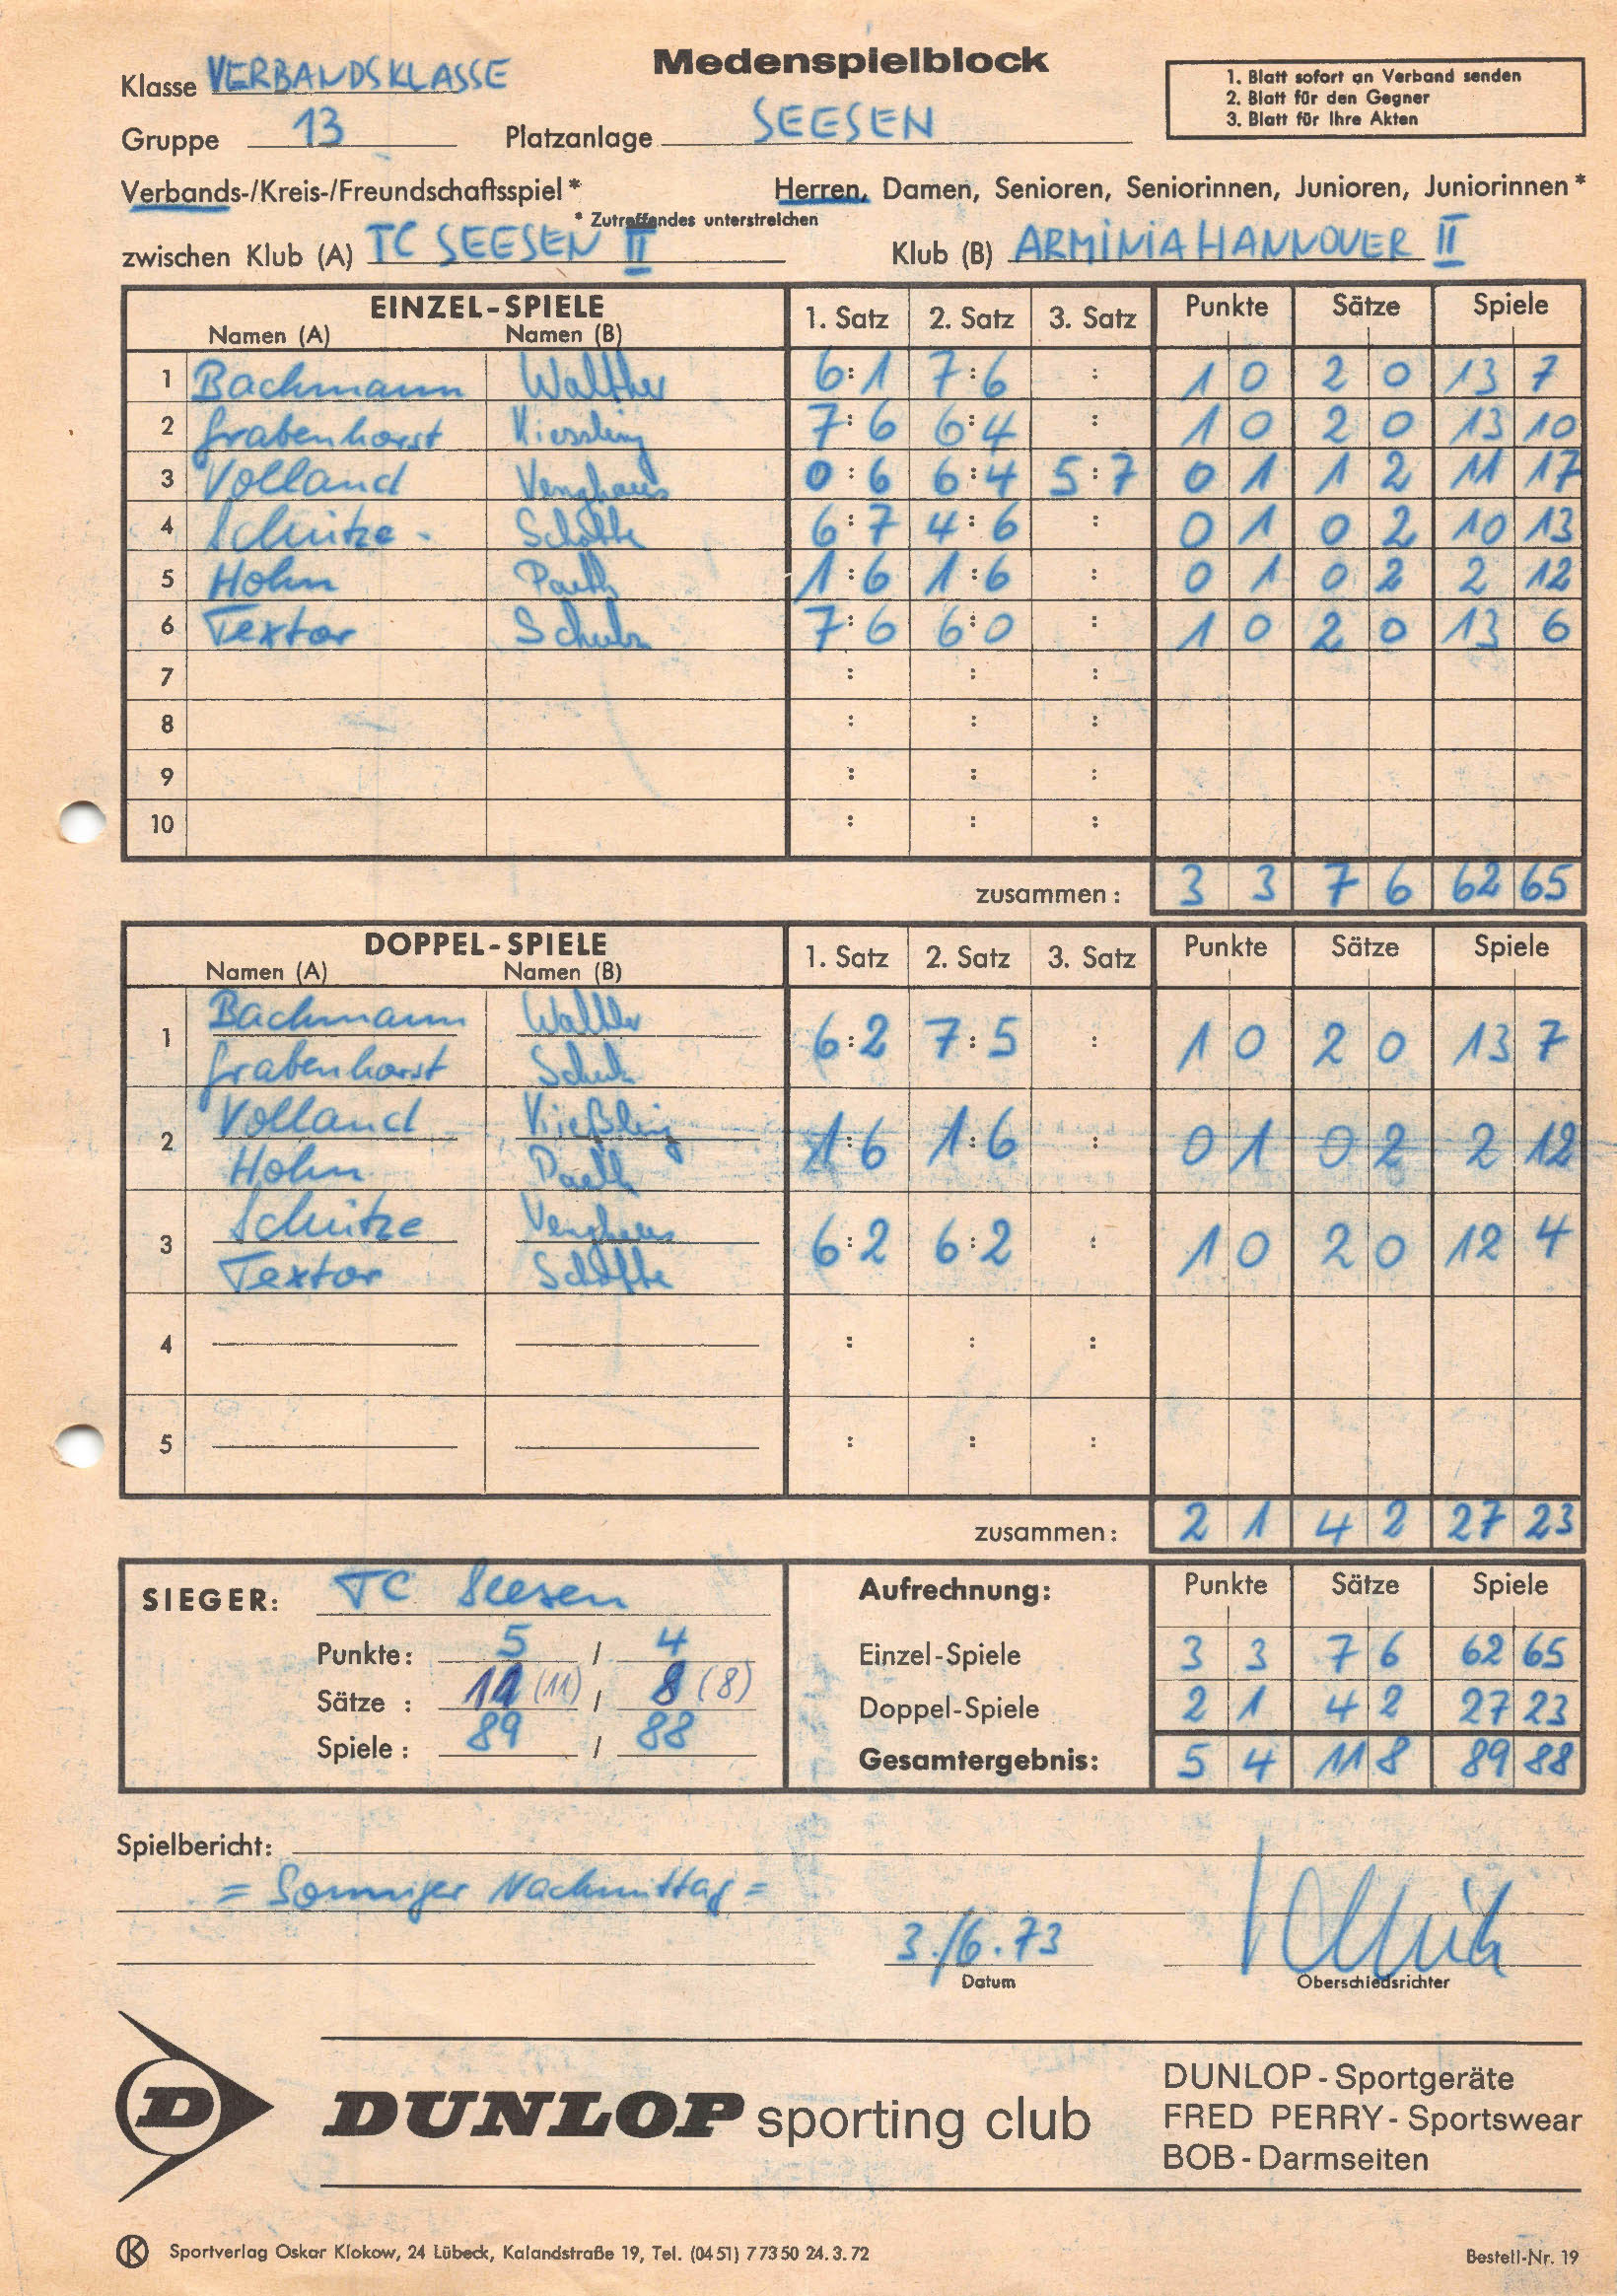 Medenspielblock
Klasse VERBANDSKLASSE
1. Blatt sofort an Verband senden
2. Blatt für den Gegner
3. Blatt für Ihre Akten
Gruppe 13 Platzanlage SEESEN
Verbands-/Kreis-/Freundschaftsspiel* Herren, Damen, Senioren, Seniorinnen, Junioren, Juniorinnen*
* Zutreffendes unterstreichen
zwischen Klub (A) TC SEESEN II Klub (B) ARMINIA HANNOVER II
EINZEL-SPIELE 1. Satz 2. Satz 3. Satz Punkte Sätze Spiele
Namen (A) Namen (B)
1 Bachmann Walther 6:1 7:6 : 1 0 2 0 13 7
2 Grabenhorst Kiessling 7:6 6:4 : 1 0 2 0 13 10
3 Volland Venghaus 0:6 6:4 5:7 0 1 1 2 11 17
4 Schütze 6:7 4:6 : 0 1 0 2 10 13
5 Hohn 1:6 1:6 : 0 1 0 2 2 12
6 Textor Schulz 7:6 6:0 : 1 0 2 0 13 6
7 : : :
8 : : :
9 : : :
10 : : :
zusammen: 3 3 7 6 62 65
DOPPEL-SPIELE 1. Satz 2. Satz 3. Satz Punkte Sätze Spiele
Namen (A) Namen (B)
Bachmann Walther
1 6:2 7:5 : 1 0 2 0 13 7
Grabenhorst
Volland Kießling
2 1:6 1:6 : 0 1 0 2 2 12
Hohn
Schütze Venghaus
3 6:2 6:2 : 1 0 2 0 12 4
Textor
4 : : :
5 : : :
zusammen: 2 1 4 2 27 23
SIEGER: TC Seesen Aufrechnung: Punkte Sätze Spiele
Punkte: 5 / 4 Einzel-Spiele 3 3 7 6 62 65
Sätze : 11 (11) / 8 (8) Doppel-Spiele 2 1 4 2 27 23
Spiele : 89 / 88 Gesamtergebnis: 5 4 11 8 89 88
Spielbericht:
= Sonniger Nachmittag =
3./6.73
Datum Oberschiedsrichter
D DUNLOP sporting club
DUNLOP - Sportgeräte
FRED PERRY - Sportswear
BOB - Darmseiten
K Sportverlag Oskar Klokow, 24 Lübeck, Kalandstraße 19, Tel. (0451) 77350 24.3.72 Bestell-Nr. 19